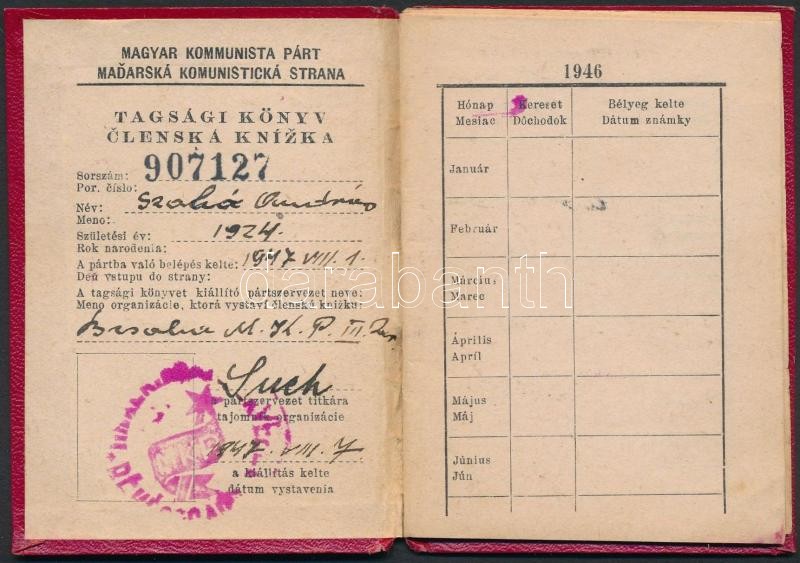 MAGYAR KOMMUNISTA PÁRT
MAĎARSKÁ KOMUNISTICKÁ STRANA
TAGSÁGI KÖNYV
ČLENSKÁ KNÍŽKA
Sorszám: 907127
Por. číslo:
Név: Szabó András
Meno:
Születési év: 1924.
Rok narodenia:
A pártba való belépés kelte: 1947 VIII. 1.
Deň vstupu do strany:
A tagsági könyvet kiállító pártszervezet neve:
Meno organizácie, ktorá vystaví členskú knižku:
M. K. P. III.
Such
a pártszervezet titkára
tajomník organizácie
1947. VIII. 7
a kiállítás kelte
dátum vystavenia
MKP
1946
Hónap Kereset Bélyeg kelte
Mesiac Dôchodok Dátum známky
Január
Február
Március
Marec
Április
Apríl
Május
Máj
Június
Jún
darabanth